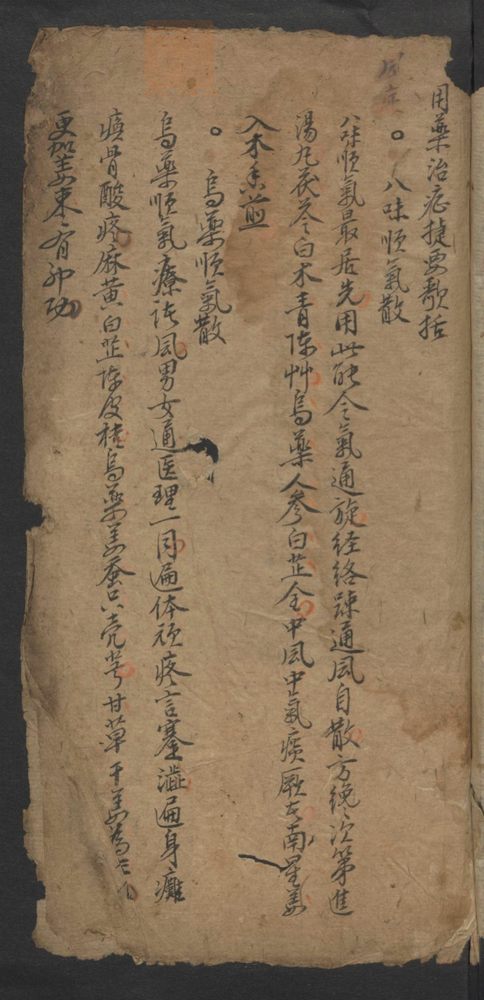 用藥治症捷要歌括
。八味順氣散
八味順氣最居先用此能令氣通旋经络踈通風自散方纔次第進
湯丸茯苓白朮青陳艸烏藥人參白芷全中風中氣痰厥去南星姜
入木香煎
。烏藥順氣散
烏藥順氣療諸風男女通医理一同遍体頑疼言蹇澁遍身癱
瘓骨酸疼麻黄白芷陳皮桔烏藥姜蚕只壳芎甘草干姜為
更加姜棗有神功